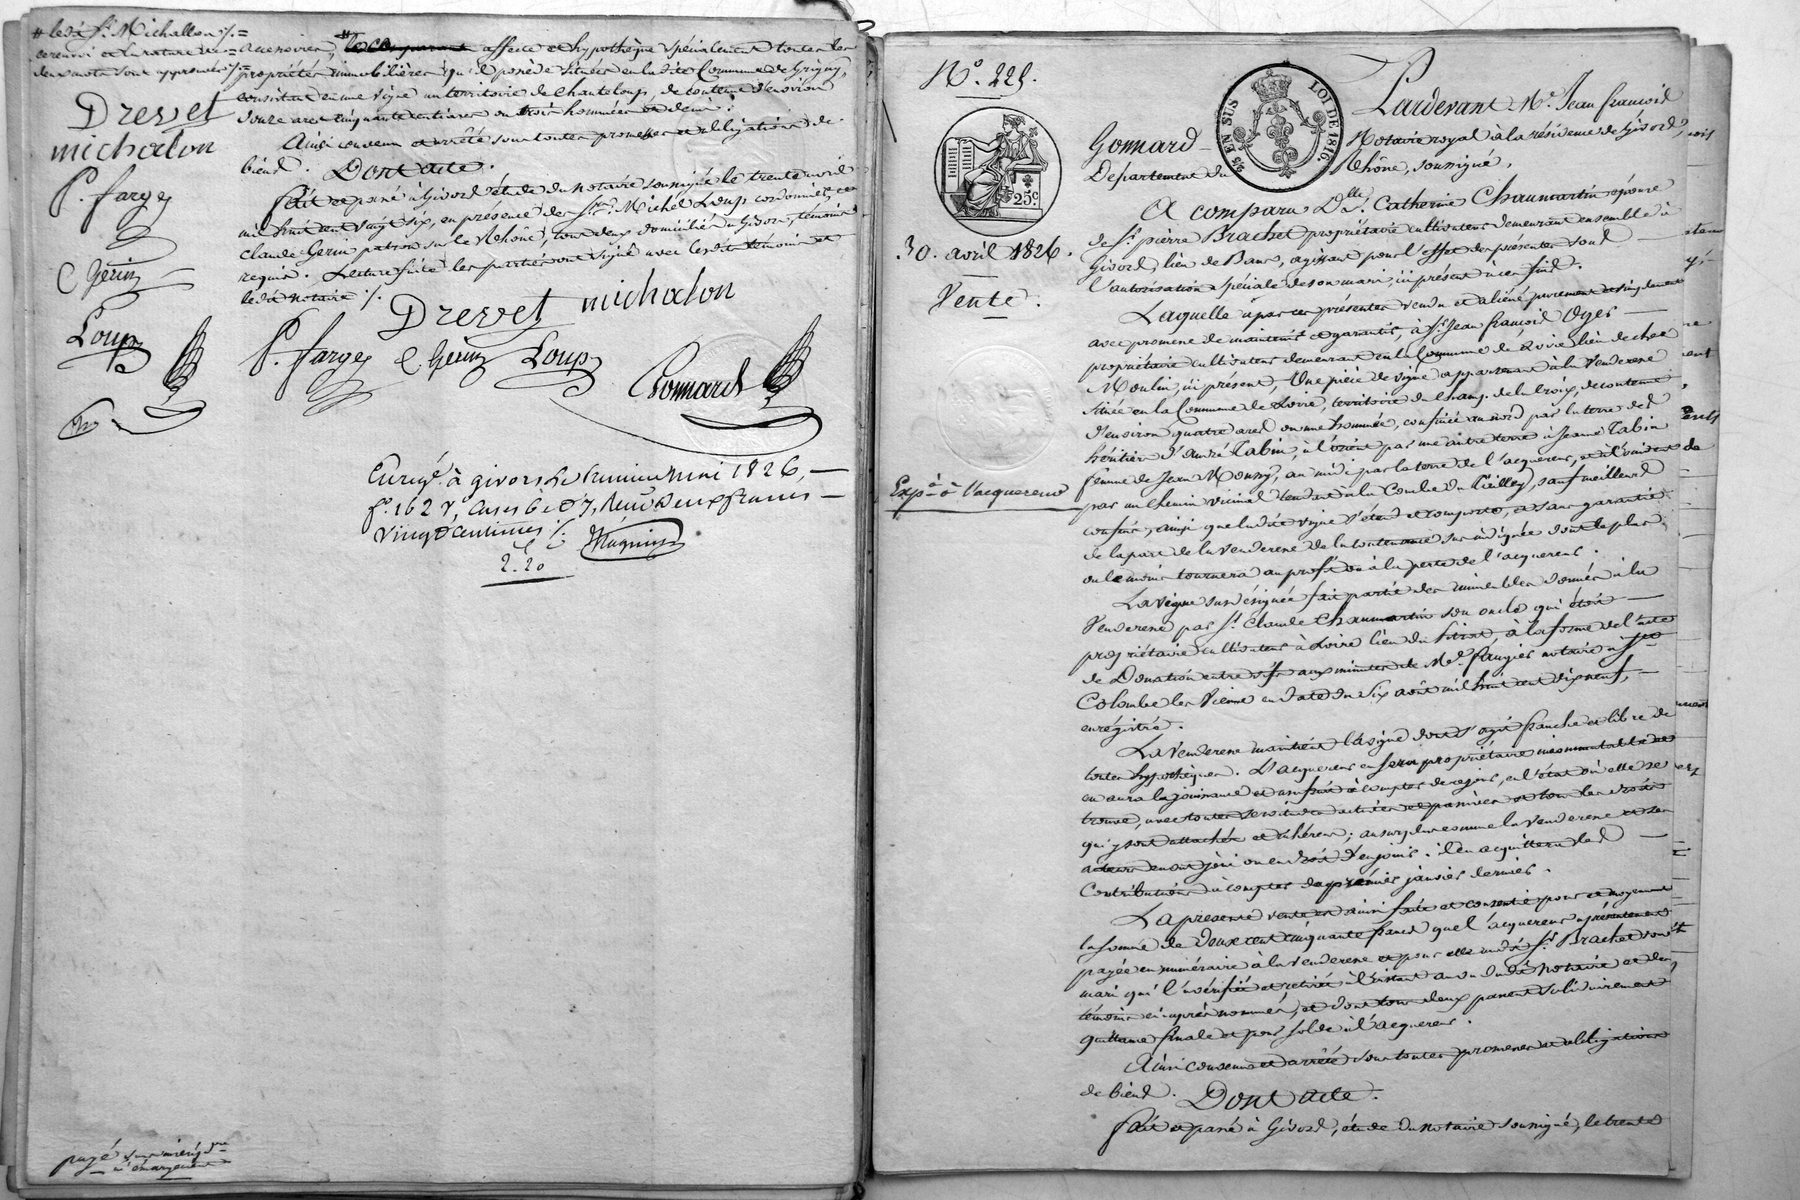 # ledit Sr. Michallon %. =
ce renvoi et la rature de =
deux mots sont approuvés %. =
Drevet
michalon
P. farge
C Gerin
Loup
avenoires, # le comparant affecte et hypothèque spécialement toutes les
propriétés immobilières qu'il possède situées en ladite Commune de Grigny,
consistant en une vigne au territoire de Chanteloup, de contenue d'environ
douze ares cinquante centiares ou trois hommées et demi.
Ainsi convenu et arrêté sous toutes promesses et obligations de
biens. Dont acte.
Fait et passé à Givors étude du notaire soussigné le trente avril
mil huit cent vingt six, en présence des Srs. Michel Loup cordonnier, et
claude Gerin patron sur le Rhône, tous deux domiciliés à Givors, témoins
requis. Lecture faite les parties ont signé avec lesdits témoins et
ledit notaire %.
Drevet michalon
P. farge C Gerin Loup
Gonnard
Enregé à givors le premier mai 1826,
fo. 162 v, cases 6 et 7, Reçu Deux francs
vingt centimes %.
2.20
payé sur
à émargement
No. 225.
25c
30. avril 1826.
Vente.
Expé à l'acquereur
25 EN SUS
LOI DE 1816.
Pardevant Me. Jean françois
Gonnard Notaire royal à la résidence de Givors,
Département du Rhône, soussigné,
A comparu Dlle. Catherine Chaumartin épouse
de Sr. pierre Brachet propriétaire cultivateur demeurant ensemble à
Givors, lieu de Bans, agissant pour l'effet des présentes sous
l'autorisation spéciale de son mari, ici présent à ces fins.
Laquelle a par ces présentes vendu et aliéné purement et simplement
avec promesse de maintenir et garantir, à Sr. Jean françois Ogier
propriétaire cultivateur demeurant en la Commune de Loire lieu de chez
Moulin, ici présent, Une pièce de vigne appartenant à la Venderesse
située en la Commune de Loire, territoire du Champ de la Croix, de contenue
d'environ quatre ares ou une hommée, confinée au nord par la terre des
héritiers d'andré Tabin, à l'orient par une autre terre à Jeanne Tabin
femme de Jean Moussy, au midi par la terre de l'acquereur, et à l'occident
par un chemin vicinal tendant à la Combe du Pilley, sauf meilleurs
confins, ainsi que ladite vigne s'étend et comporte, et sans garantie
de la part de la venderesse de la contenance sus indiquée dont le plus
ou le moins tournera au profit ou à la perte de l'acquereur.
La vigne sus désignée fait partie des immeubles donnés à la
Venderesse par Sr. Claude Chaumartin son oncle qui étoit
propriétaire cultivateur à Loire lieu du Sitrat, à la forme de l'acte
de Donation entre vifs aux minutes de Me. Faugier notaire à Ste
Colombe les Vienne en date du six août mil huit cent dix neuf,
enrégistré.
La Venderesse maintient la vigne dont s'agit franche et libre de
toutes hypothèques. L'acquereur en sera propriétaire incommutable et
en aura la jouissance et usufruit à compter de ce jour, en l'état où elle se
trouve, avec toutes servitudes actives et passives et tous les droits
qui y sont attachés et adhérens; au surplus comme la venderesse et ses
auteurs en ont joui ou eu droit d'en jouir. il en acquittera les
Contributions à compter du premier janvier dernier.
La presente vente est ainsi faite et consentie pour et moyennant
la somme de deux cent cinquante francs que l'acquereur a présentement
payée en numéraire à la venderesse et pour elle audit Sr. Brachet son
mari qui l'a vérifiée et retirée à l'instant au vu dudit notaire et des
témoins ci après nommés, et dont tous deux passent solidairement
quittance finale et pour solde à l'acquereur.
Ainsi convenu et arrêté sous toutes promesses et obligations
de biens. Dont acte.
Fait et passé à Givors, étude du notaire soussigné, le trente